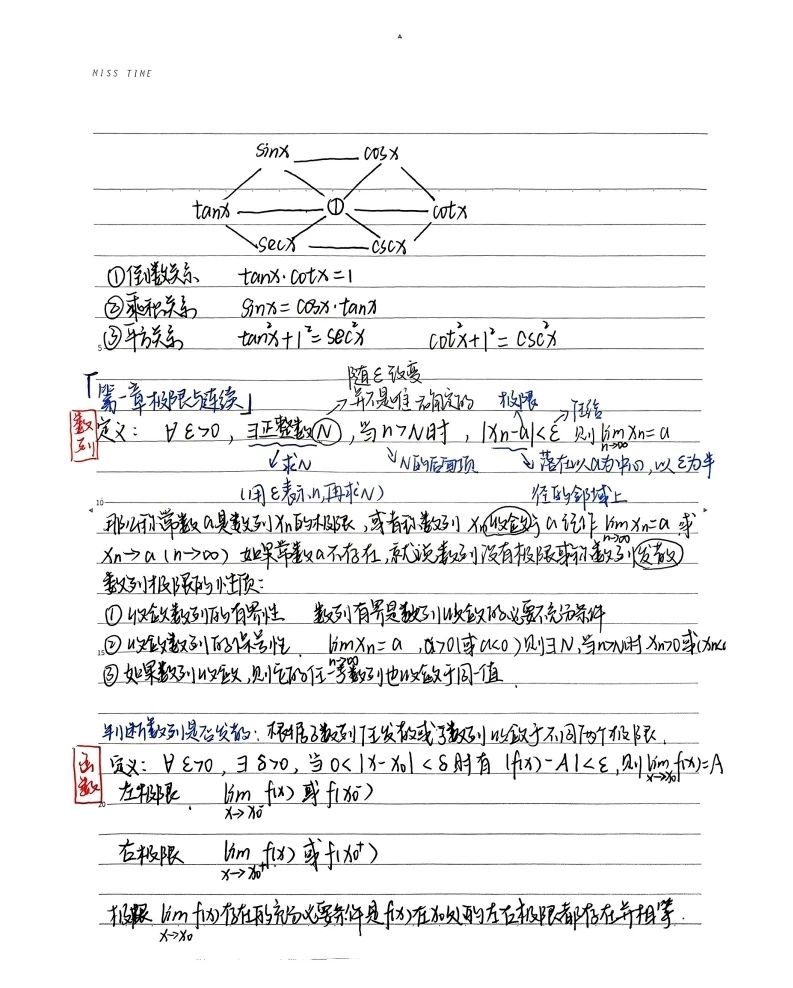 MISS TIME
sinx cosx
tanx ① cotx
secx cscx
①倒数关系 tanx·cotx=1
②乘积关系 sinx=cosx·tanx
5 ③平方关系 tan²x+1²=sec²x cot²x+1²=csc²x
随ε改变
「第一章极限与连续」 并不是唯一确定的 极限 任给
数列 定义: ∀ε>0, ∃正整数N, 当n>N时, |xn-a|<ε 则lim xn=a
n→∞
求N N的后面项 落在以a为中心,以ε为半
10 (用ε表示n,再求N) 径的邻域上
那么称常数a是数列xn的极限,或者称数列xn收敛于a记作lim xn=a或
n→∞
xn→a(n→∞) 如果常数a不存在,就说数列没有极限或称数列发散
数列极限的性质:
①收敛数列的有界性 数列有界是数列收敛的必要不充分条件
15 ②收敛数列的保号性. lim xn=a ,a>0(或a<0)则∃N,当n>N时 xn>0或(xn<0
n→∞
③如果数列收敛,则它的任一子数列也收敛于同一值.
判断数列是否发散:根据子数列 发散或子数列收敛于不同两个极限.
函数 定义: ∀ε>0, ∃δ>0, 当0<|x-x0|<δ时有 |f(x)-A|<ε,则lim f(x)=A
x→x0
20 左极限. lim f(x) 或 f(x0⁻)
x→x0⁻
右极限 lim f(x) 或 f(x0⁺)
x→x0⁺
极限 lim f(x)存在的充分必要条件是f(x)在x0处的左右极限都存在并相等.
x→x0